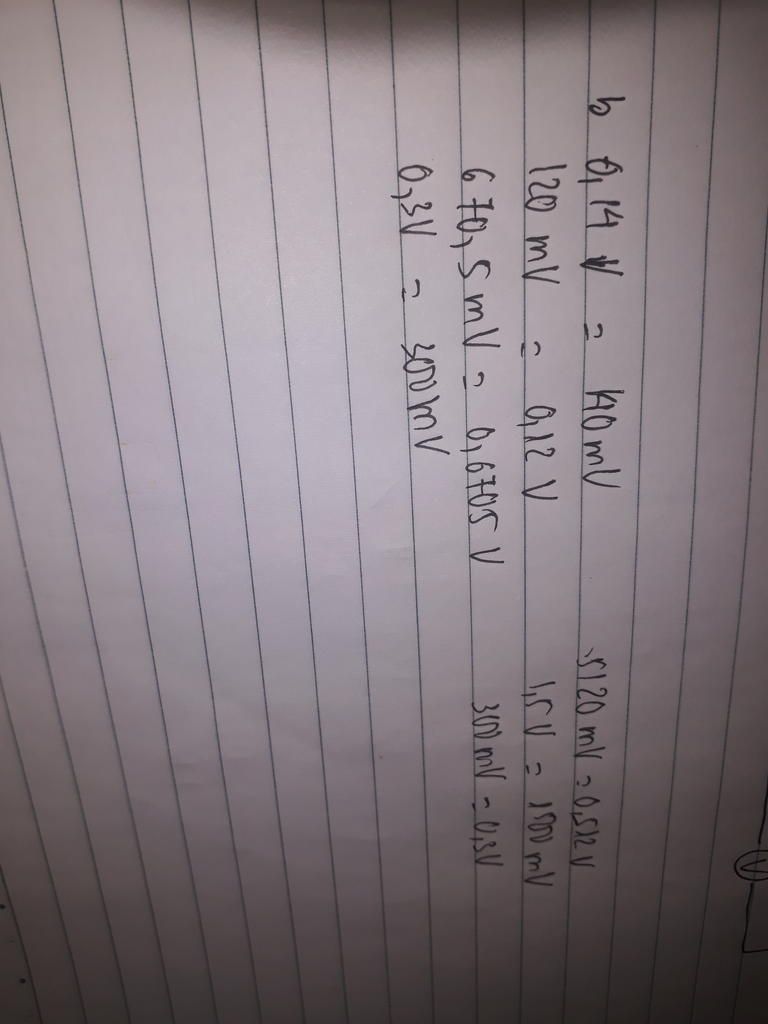 b 0,14 V = 140 mV
120 mV = 0,12 V
670,5 mV = 0,6705 V
0,3V = 300 mV
5120 mV = 0,512 V
1,5V = 1500 mV
300 mV = 0,3V
V